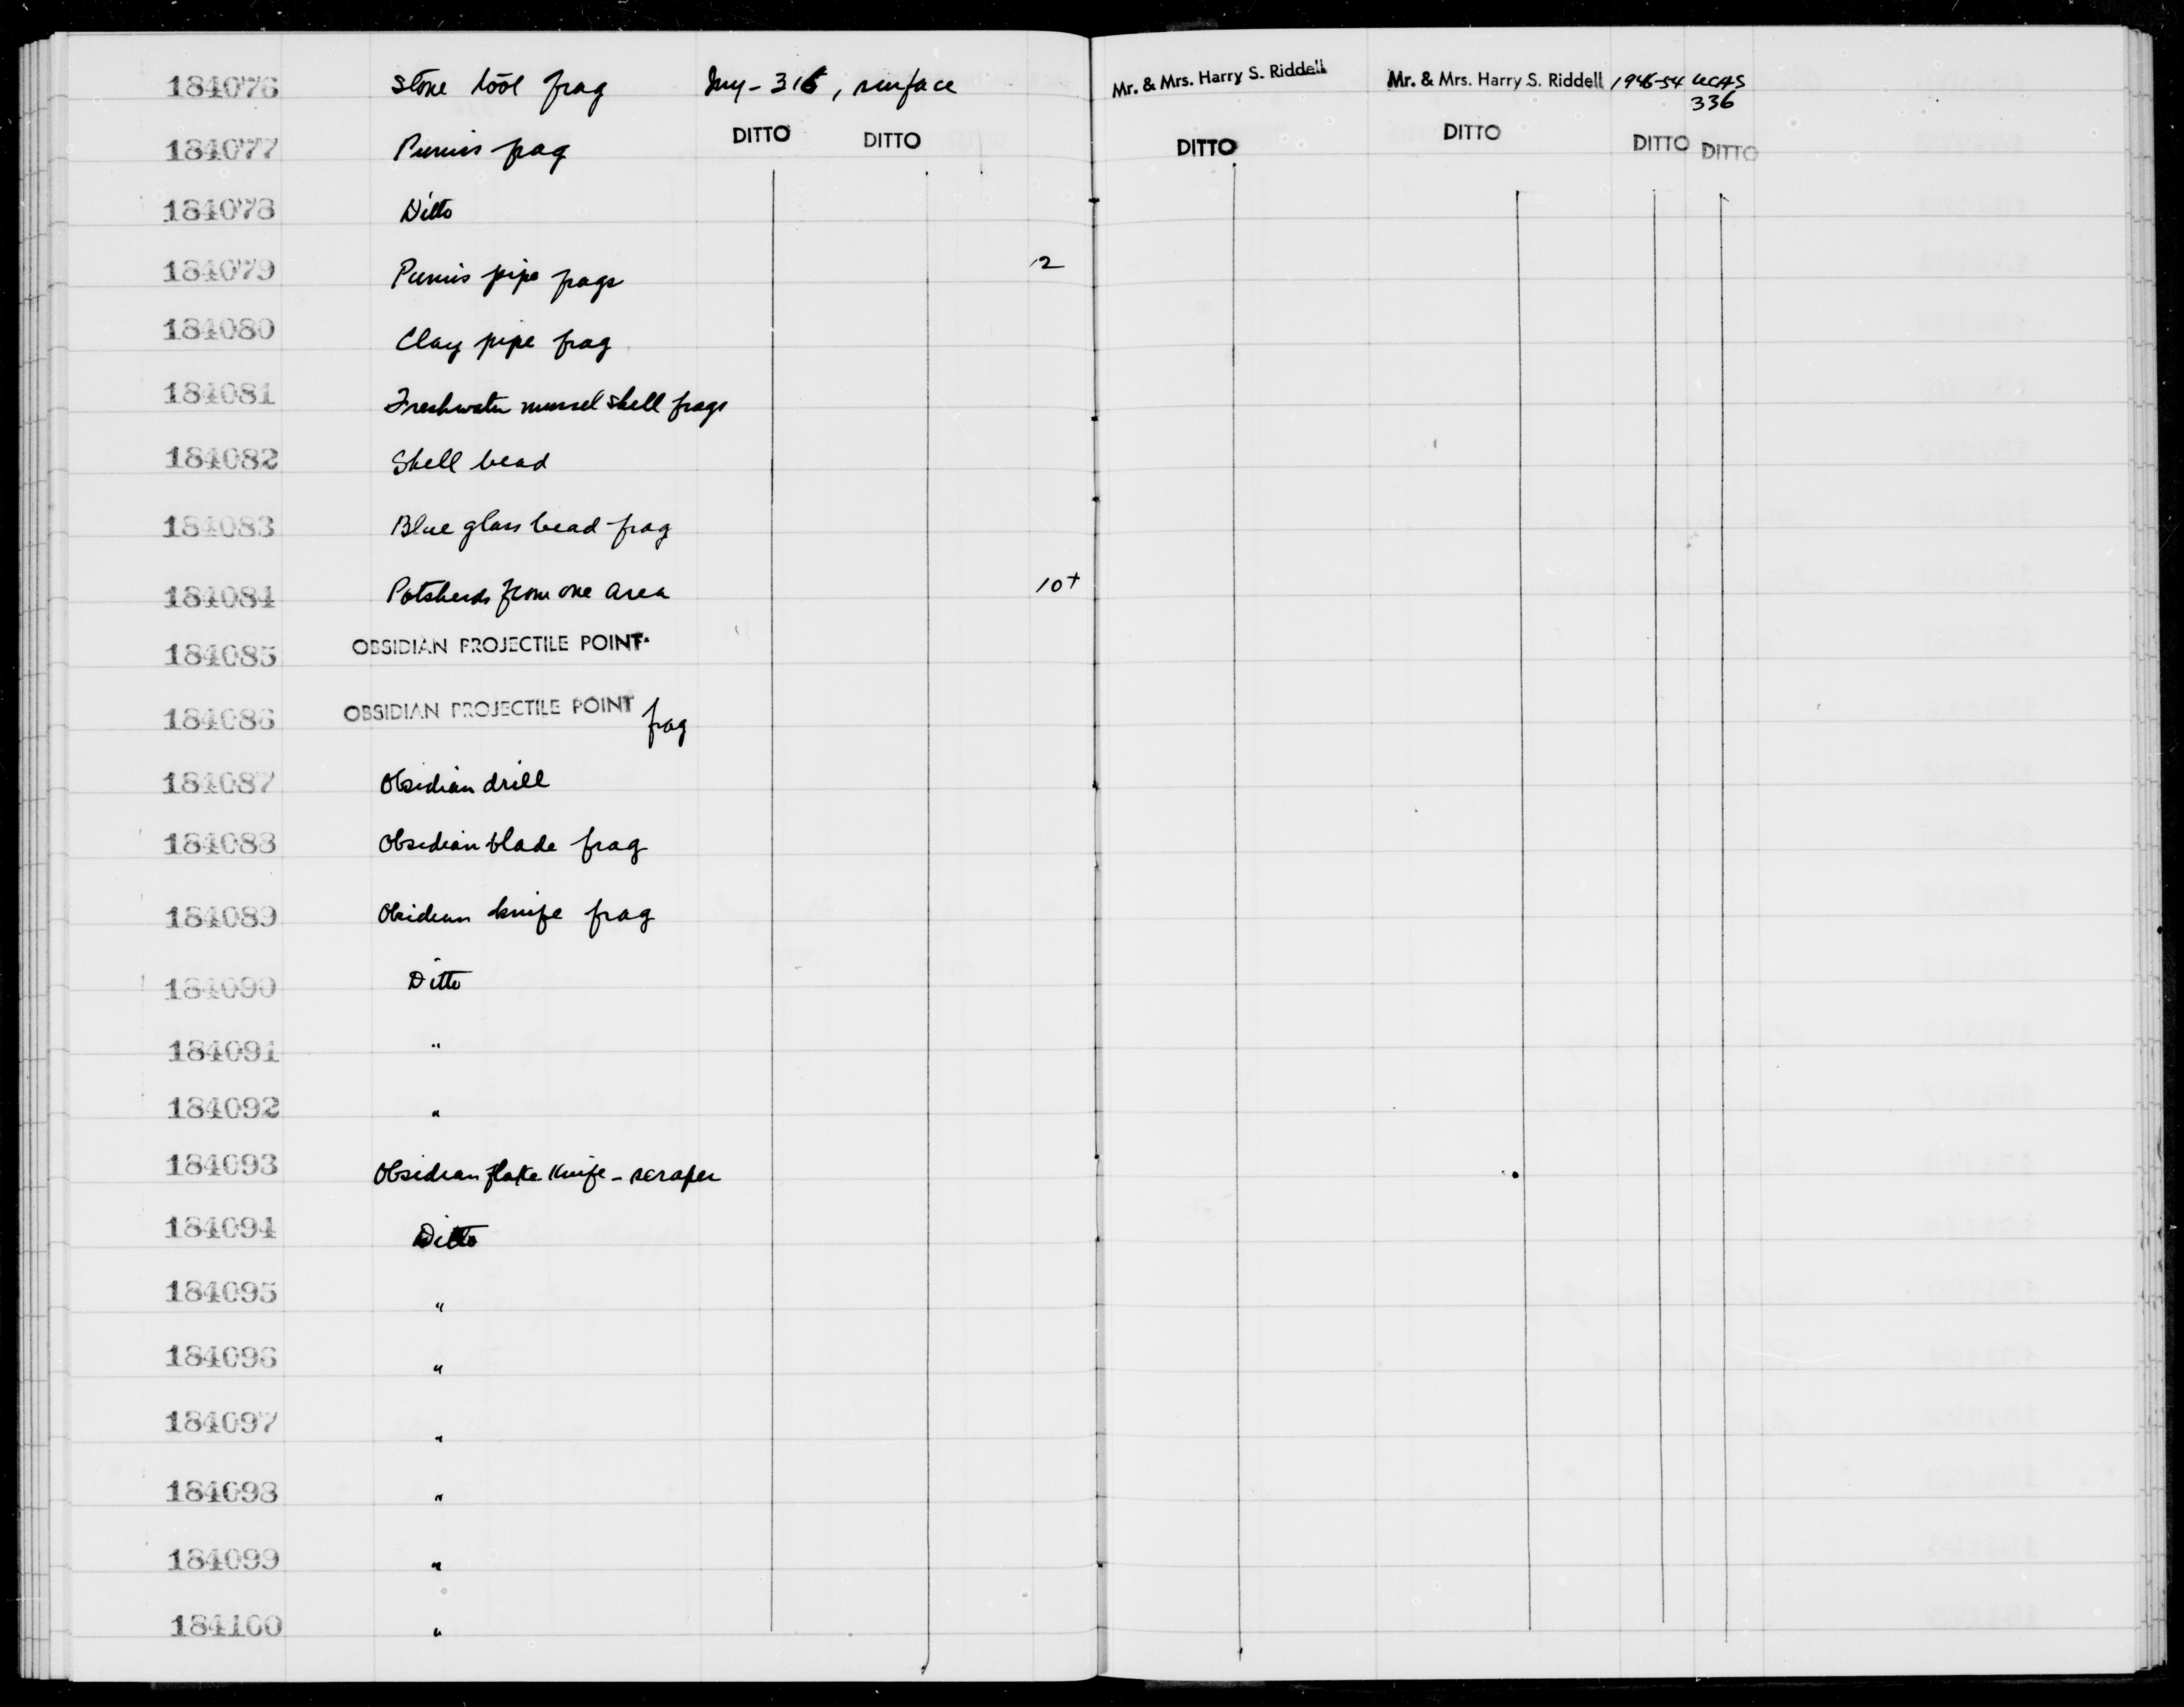 184076 Stone tool frag Iny-316, surface Mr. & Mrs. Harry S. Riddell Mr. & Mrs. Harry S. Riddell 1946-54 UCAS
336
184077 Pumis frag DITTO DITTO DITTO DITTO DITTO DITTO
184078 Ditto
184079 Pumis pipe frags 2
184080 Clay pipe frag
184081 Freshwater mussel shell frags
184082 Shell bead
184083 Blue glass bead frag
184084 Potsherds from one area 10+
184085 OBSIDIAN PROJECTILE POINT
184086 OBSIDIAN PROJECTILE POINT frag
184087 Obsidian drill
184088 Obsidian blade frag
184089 Obsidian knife frag
184090 Ditto
184091 "
184092 "
184093 Obsidian flake knife - scraper
184094 Ditto
184095 "
184096 "
184097 "
184098 "
184099 "
184100 "